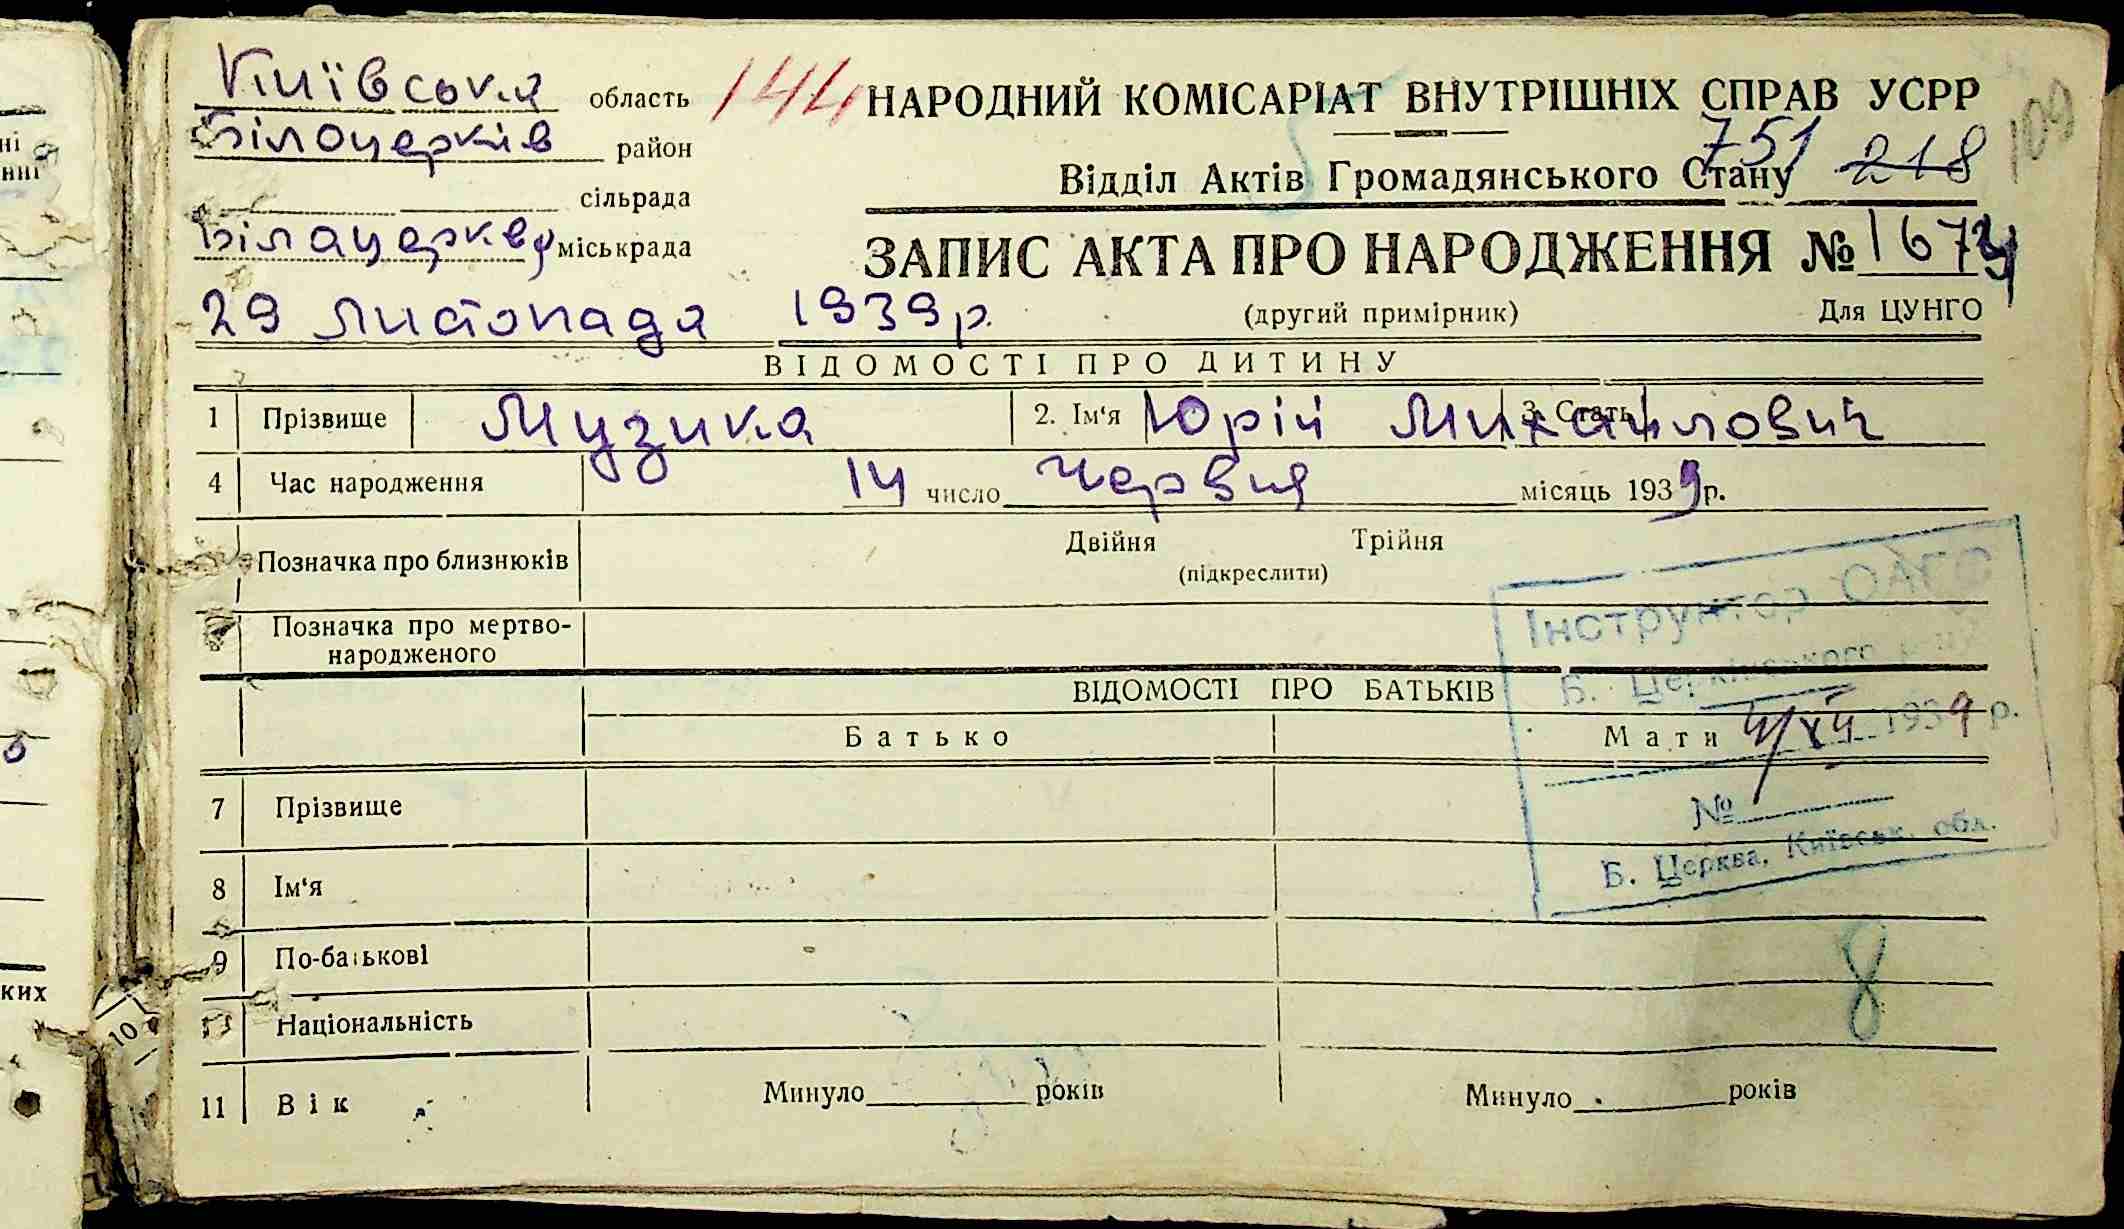 Київська область 144 НАРОДНИЙ КОМІСАРІАТ ВНУТРІШНІХ СПРАВ УСРР 109
Білоцерків район 751 218
Відділ Актів Громадянського Стану
сільрада
Білацеркву міськрада ЗАПИС АКТА ПРО НАРОДЖЕННЯ № 1673
29 листопада 1939 р. (другий примірник) Для ЦУНГО
ВІДОМОСТІ ПРО ДИТИНУ
1 Прізвище Музика 2. Ім'я Юрій Михайлович 3. Стать
4 Час народження 14 число Червня місяць 1939 р.
Позначка про близнюків Двійня Трійня
(підкреслити)
Позначка про мертво-
народженого
Інструктор ОАГС
Б. Церківського
ВІДОМОСТІ ПРО БАТЬКІВ
Батько Мати
4/XII 1939 р.
7 Прізвище
№
Б. Церква, Київськ. обл.
8 Ім'я
9 По-батькові
8
Національність
10
11 Вік Минуло років Минуло років
ні
нні
ких